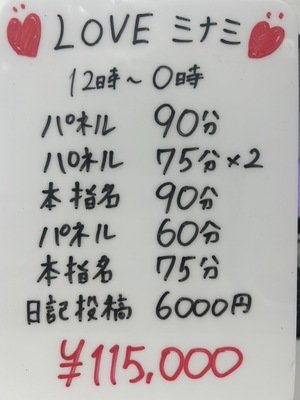 LOVE ミナミ
12時〜0時
パネル 90分
パネル 75分×2
本指名 90分
パネル 60分
本指名 75分
日記投稿 6000円
¥115,000